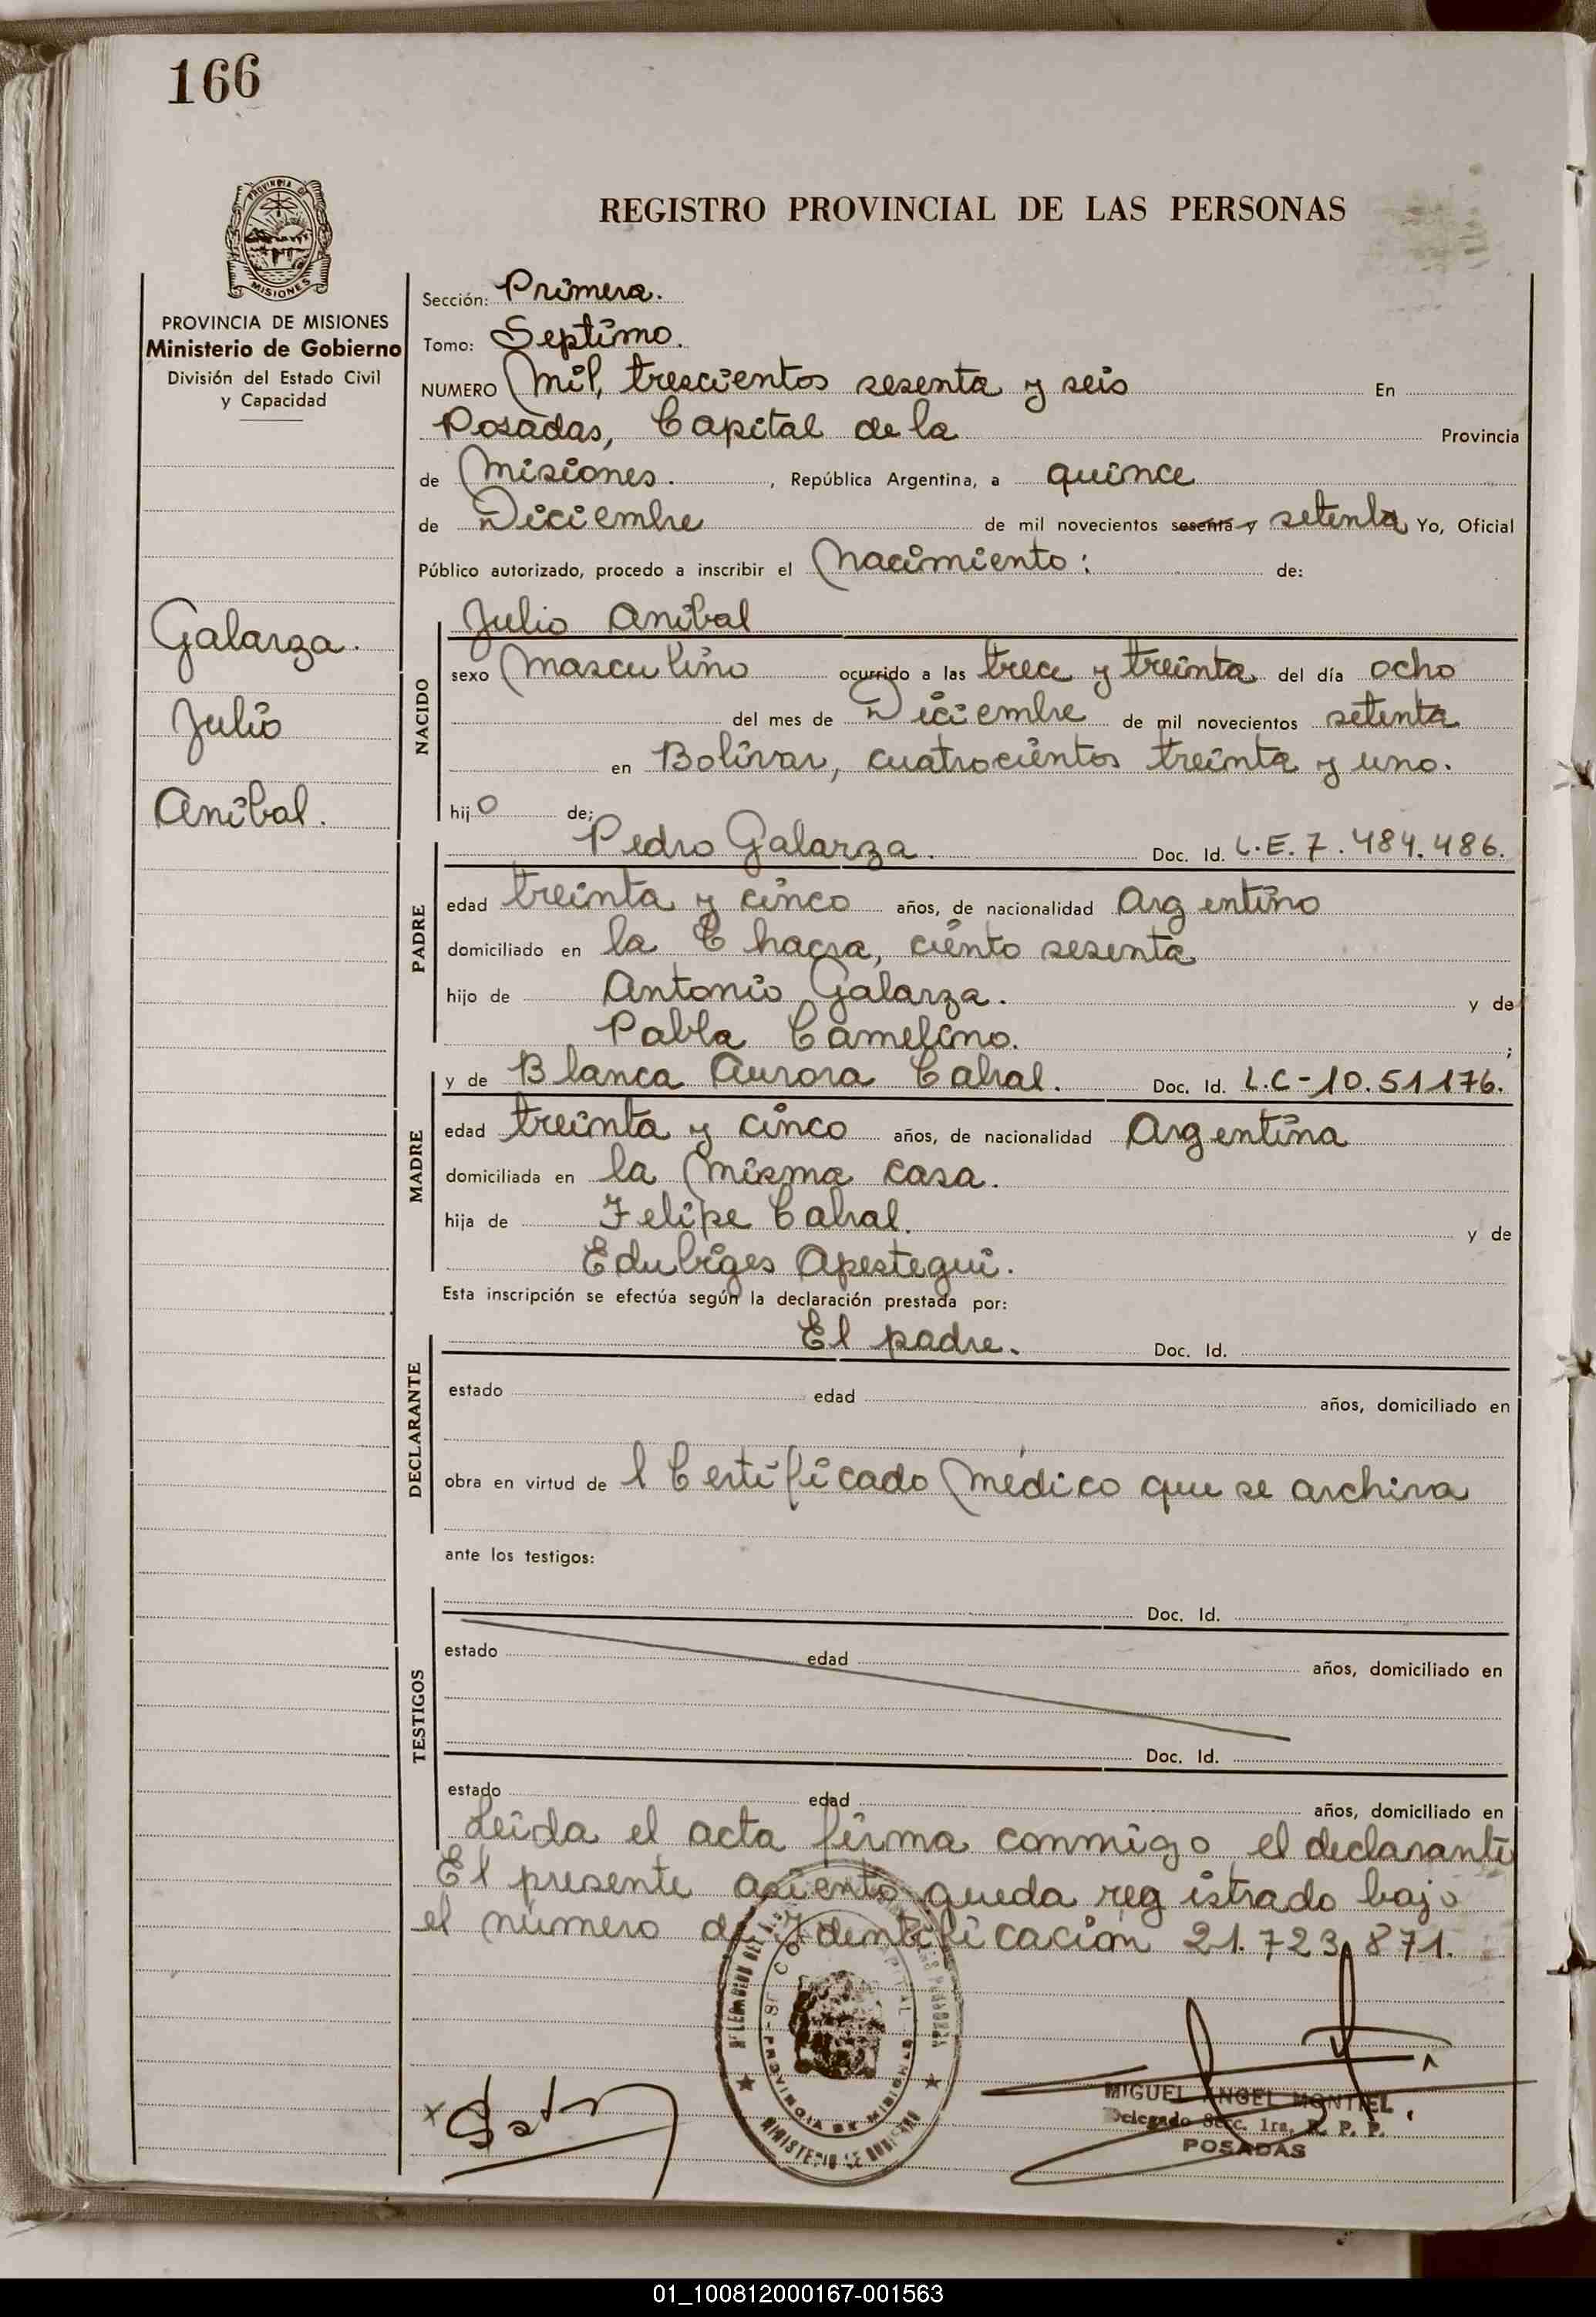 166
PROVINCIA DE MISIONES
REGISTRO PROVINCIAL DE LAS PERSONAS
PROVINCIA DE MISIONES
Ministerio de Gobierno
División del Estado Civil
y Capacidad
Galarza.
Julio
Anibal.
Sección: Primera.
Tomo: Septimo.
NUMERO Mil, trescientos sesenta y seis En
Posadas, Capital de la Provincia
de Misiones. , República Argentina, a quince
de Diciembre de mil novecientos sesenta y setenta Yo, Oficial
Público autorizado, procedo a inscribir el Nacimiento: de:
NACIDO
Julio Anibal
sexo Masculino ocurrido a las trece y treinta del día ocho
del mes de Diciembre de mil novecientos setenta
en Bolivar, cuatrocientos treinta y uno.
hijo de:
PADRE
Pedro Galarza. Doc. Id. L.E. 7.484.486.
edad treinta y cinco años, de nacionalidad Argentino
domiciliado en la Chacra, ciento sesenta
hijo de Antonio Galarza. y de
Pabla Camelino. ;
MADRE
y de Blanca Aurora Cabral. Doc. Id. L.C-10.51176.
edad treinta y cinco años, de nacionalidad Argentina
domiciliada en la Misma casa.
hija de Felipe Cabral. y de
Edubiges Apestegui.
Esta inscripción se efectúa según la declaración prestada por:
DECLARANTE
El padre. Doc. Id.
estado edad años, domiciliado en
obra en virtud de l Certificado Médico que se archiva
ante los testigos:
TESTIGOS
Doc. Id.
estado edad años, domiciliado en
Doc. Id.
estado edad años, domiciliado en
Leida el acta firma conmigo el declarante
El presente asiento queda registrado bajo
el número de Identificación 21.723.871.
PROVINCIA DE MISIONES
MINISTERIO DE GOBIERNO
MIGUEL ANGEL MONTIEL
Delegado Secc. 1ra. R. P. P.
POSADAS
01_100812000167-001563